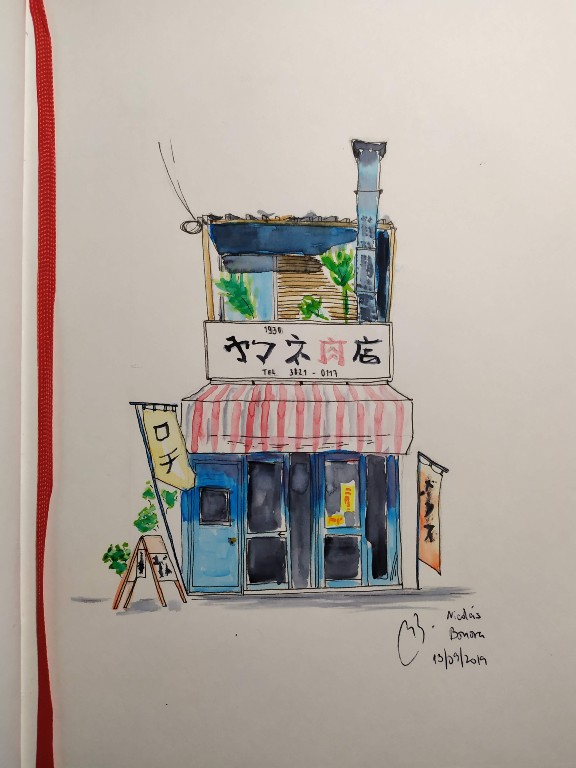 1930
ヤマネ肉店
TEL 3821-0117
ロチ
Nicolás
Bonora
13/09/2019